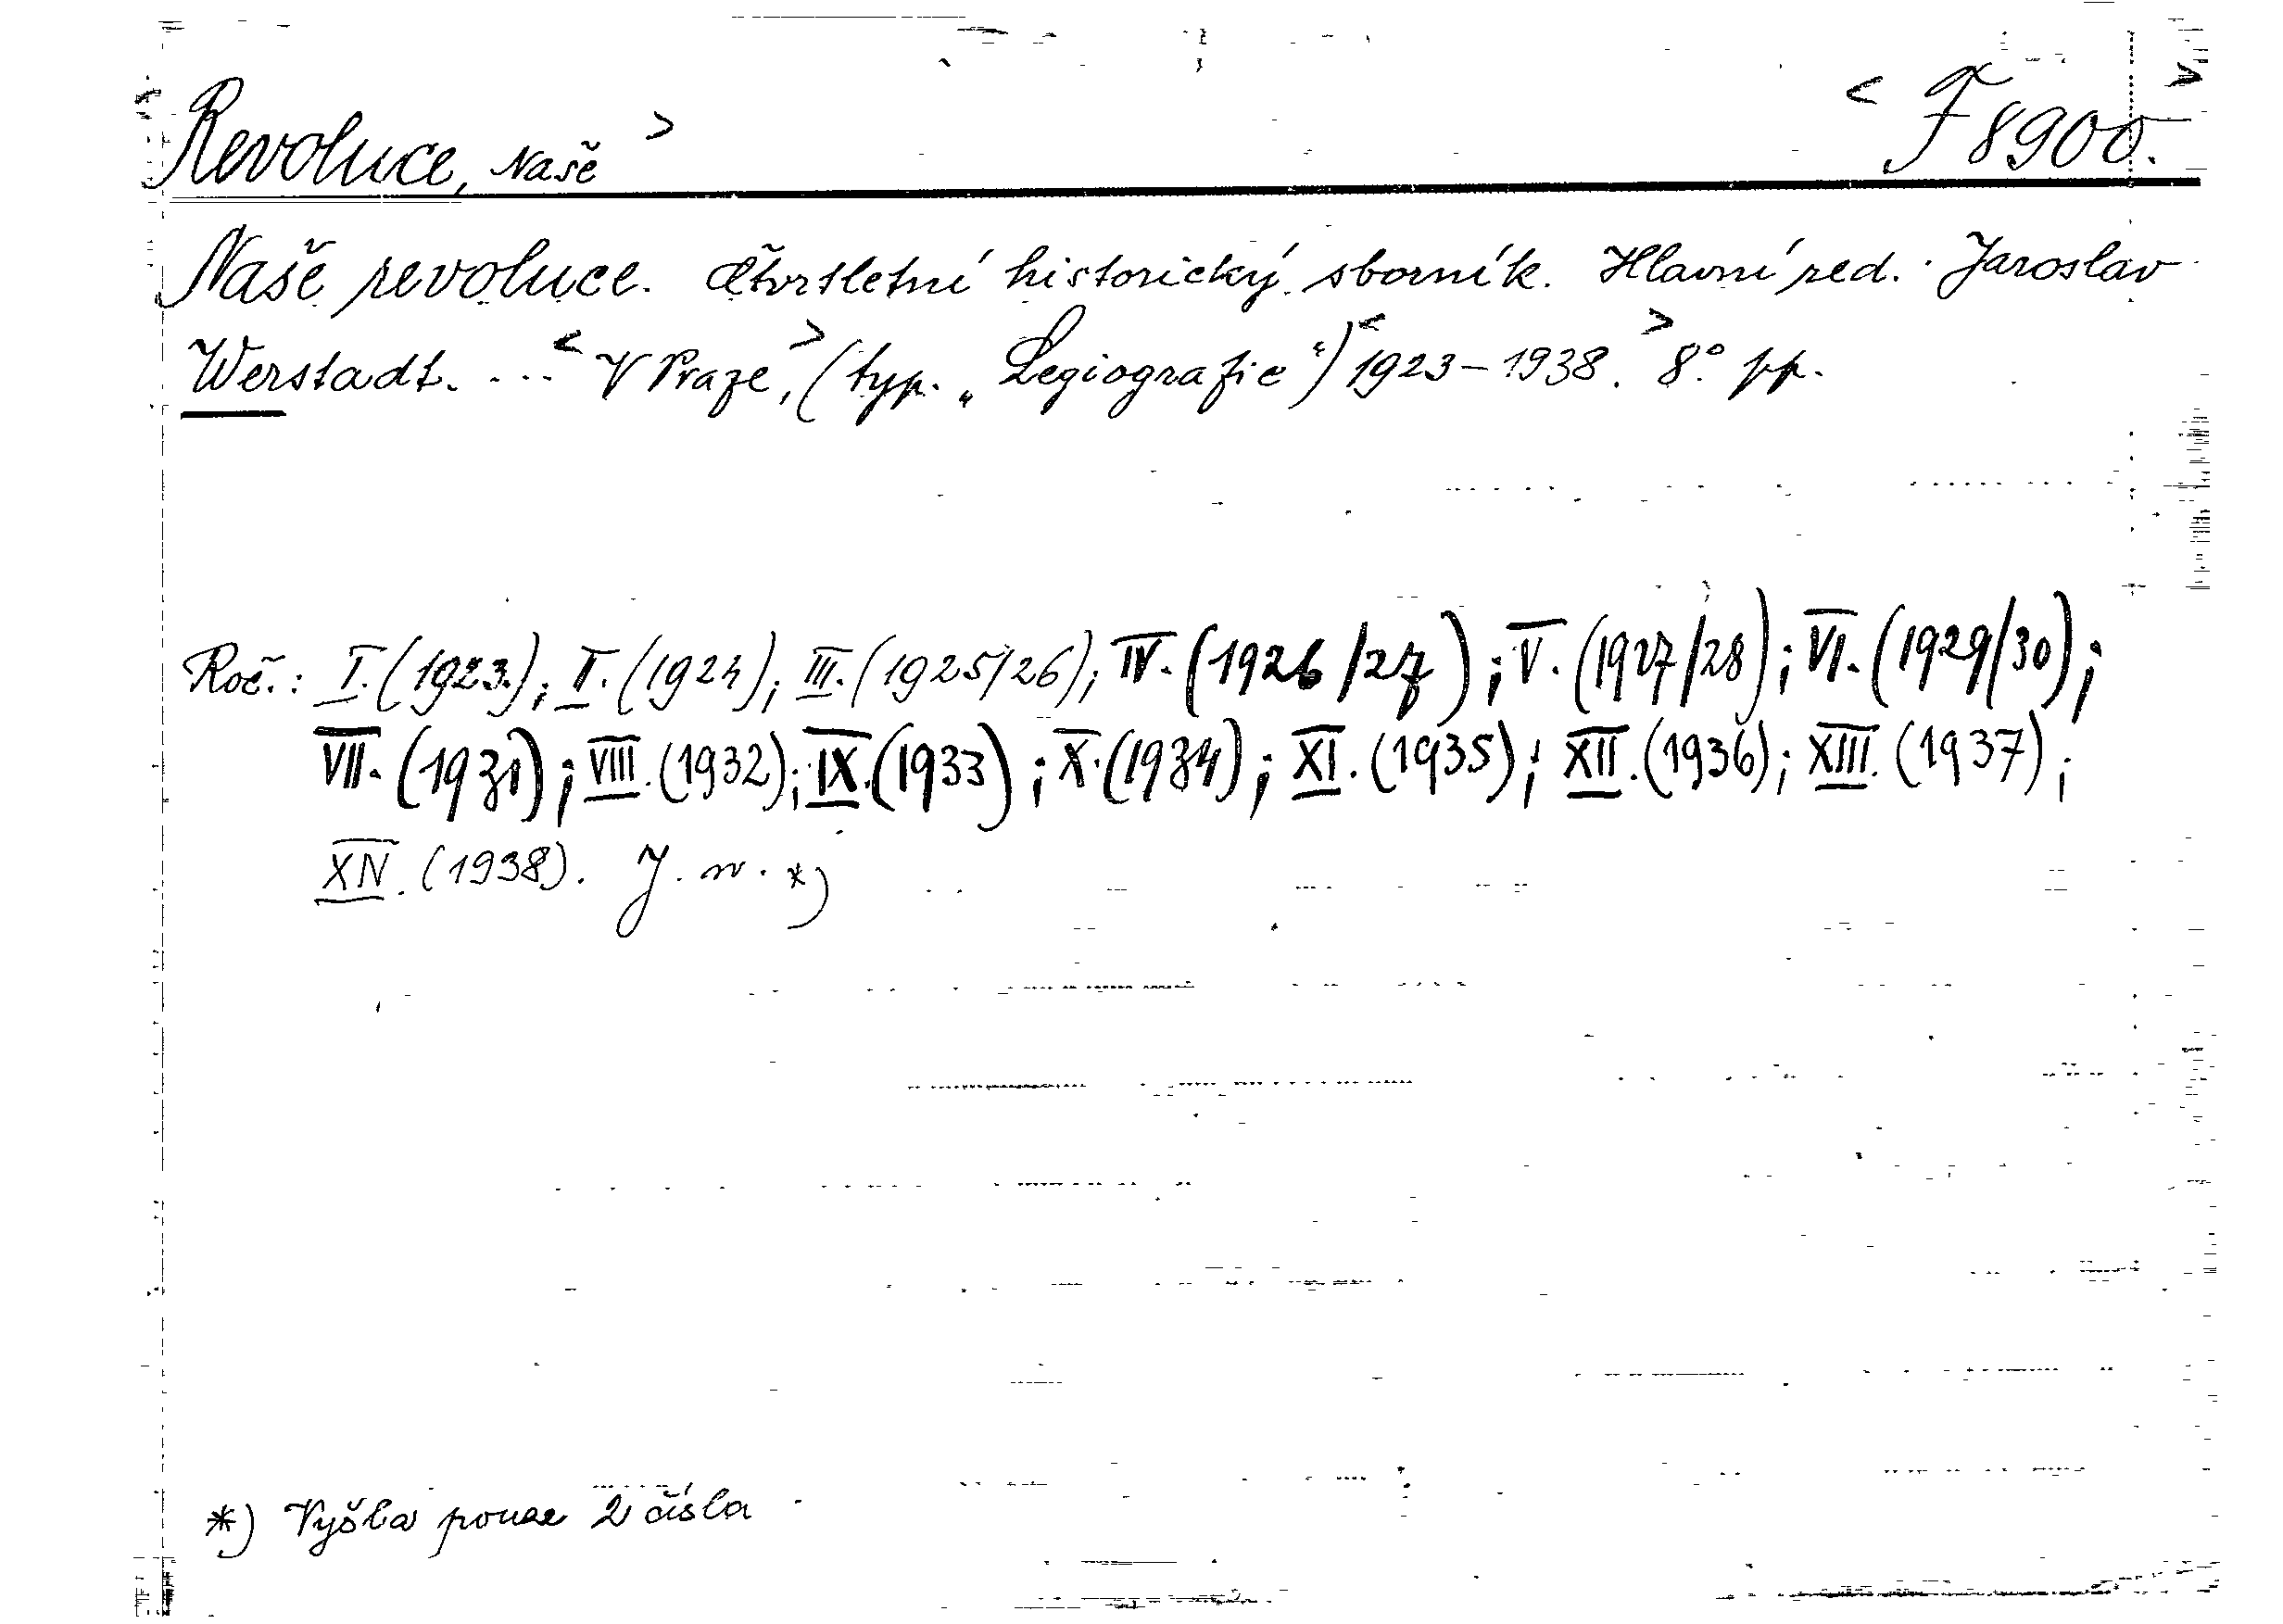 Revoluce, Naše > < F 8900. >
Naše revoluce. Čtvrtletní historický sborník. Hlavní red. Jaroslav
Werstadt. ... < V Praze, > (typ. „Legiografie“) < 1923–1938. > 8° pp.
Roč.: I. (1923.); II. (1924); III. (1925/26); IV. (1926/27); V. (1927/28); VI. (1929/30);
VII. (1931); VIII. (1932); IX. (1933); X. (1934); XI. (1935); XII. (1936); XIII. (1937);
XIV. (1938). J. n. *)
*) Vyšla pouze 2 čísla